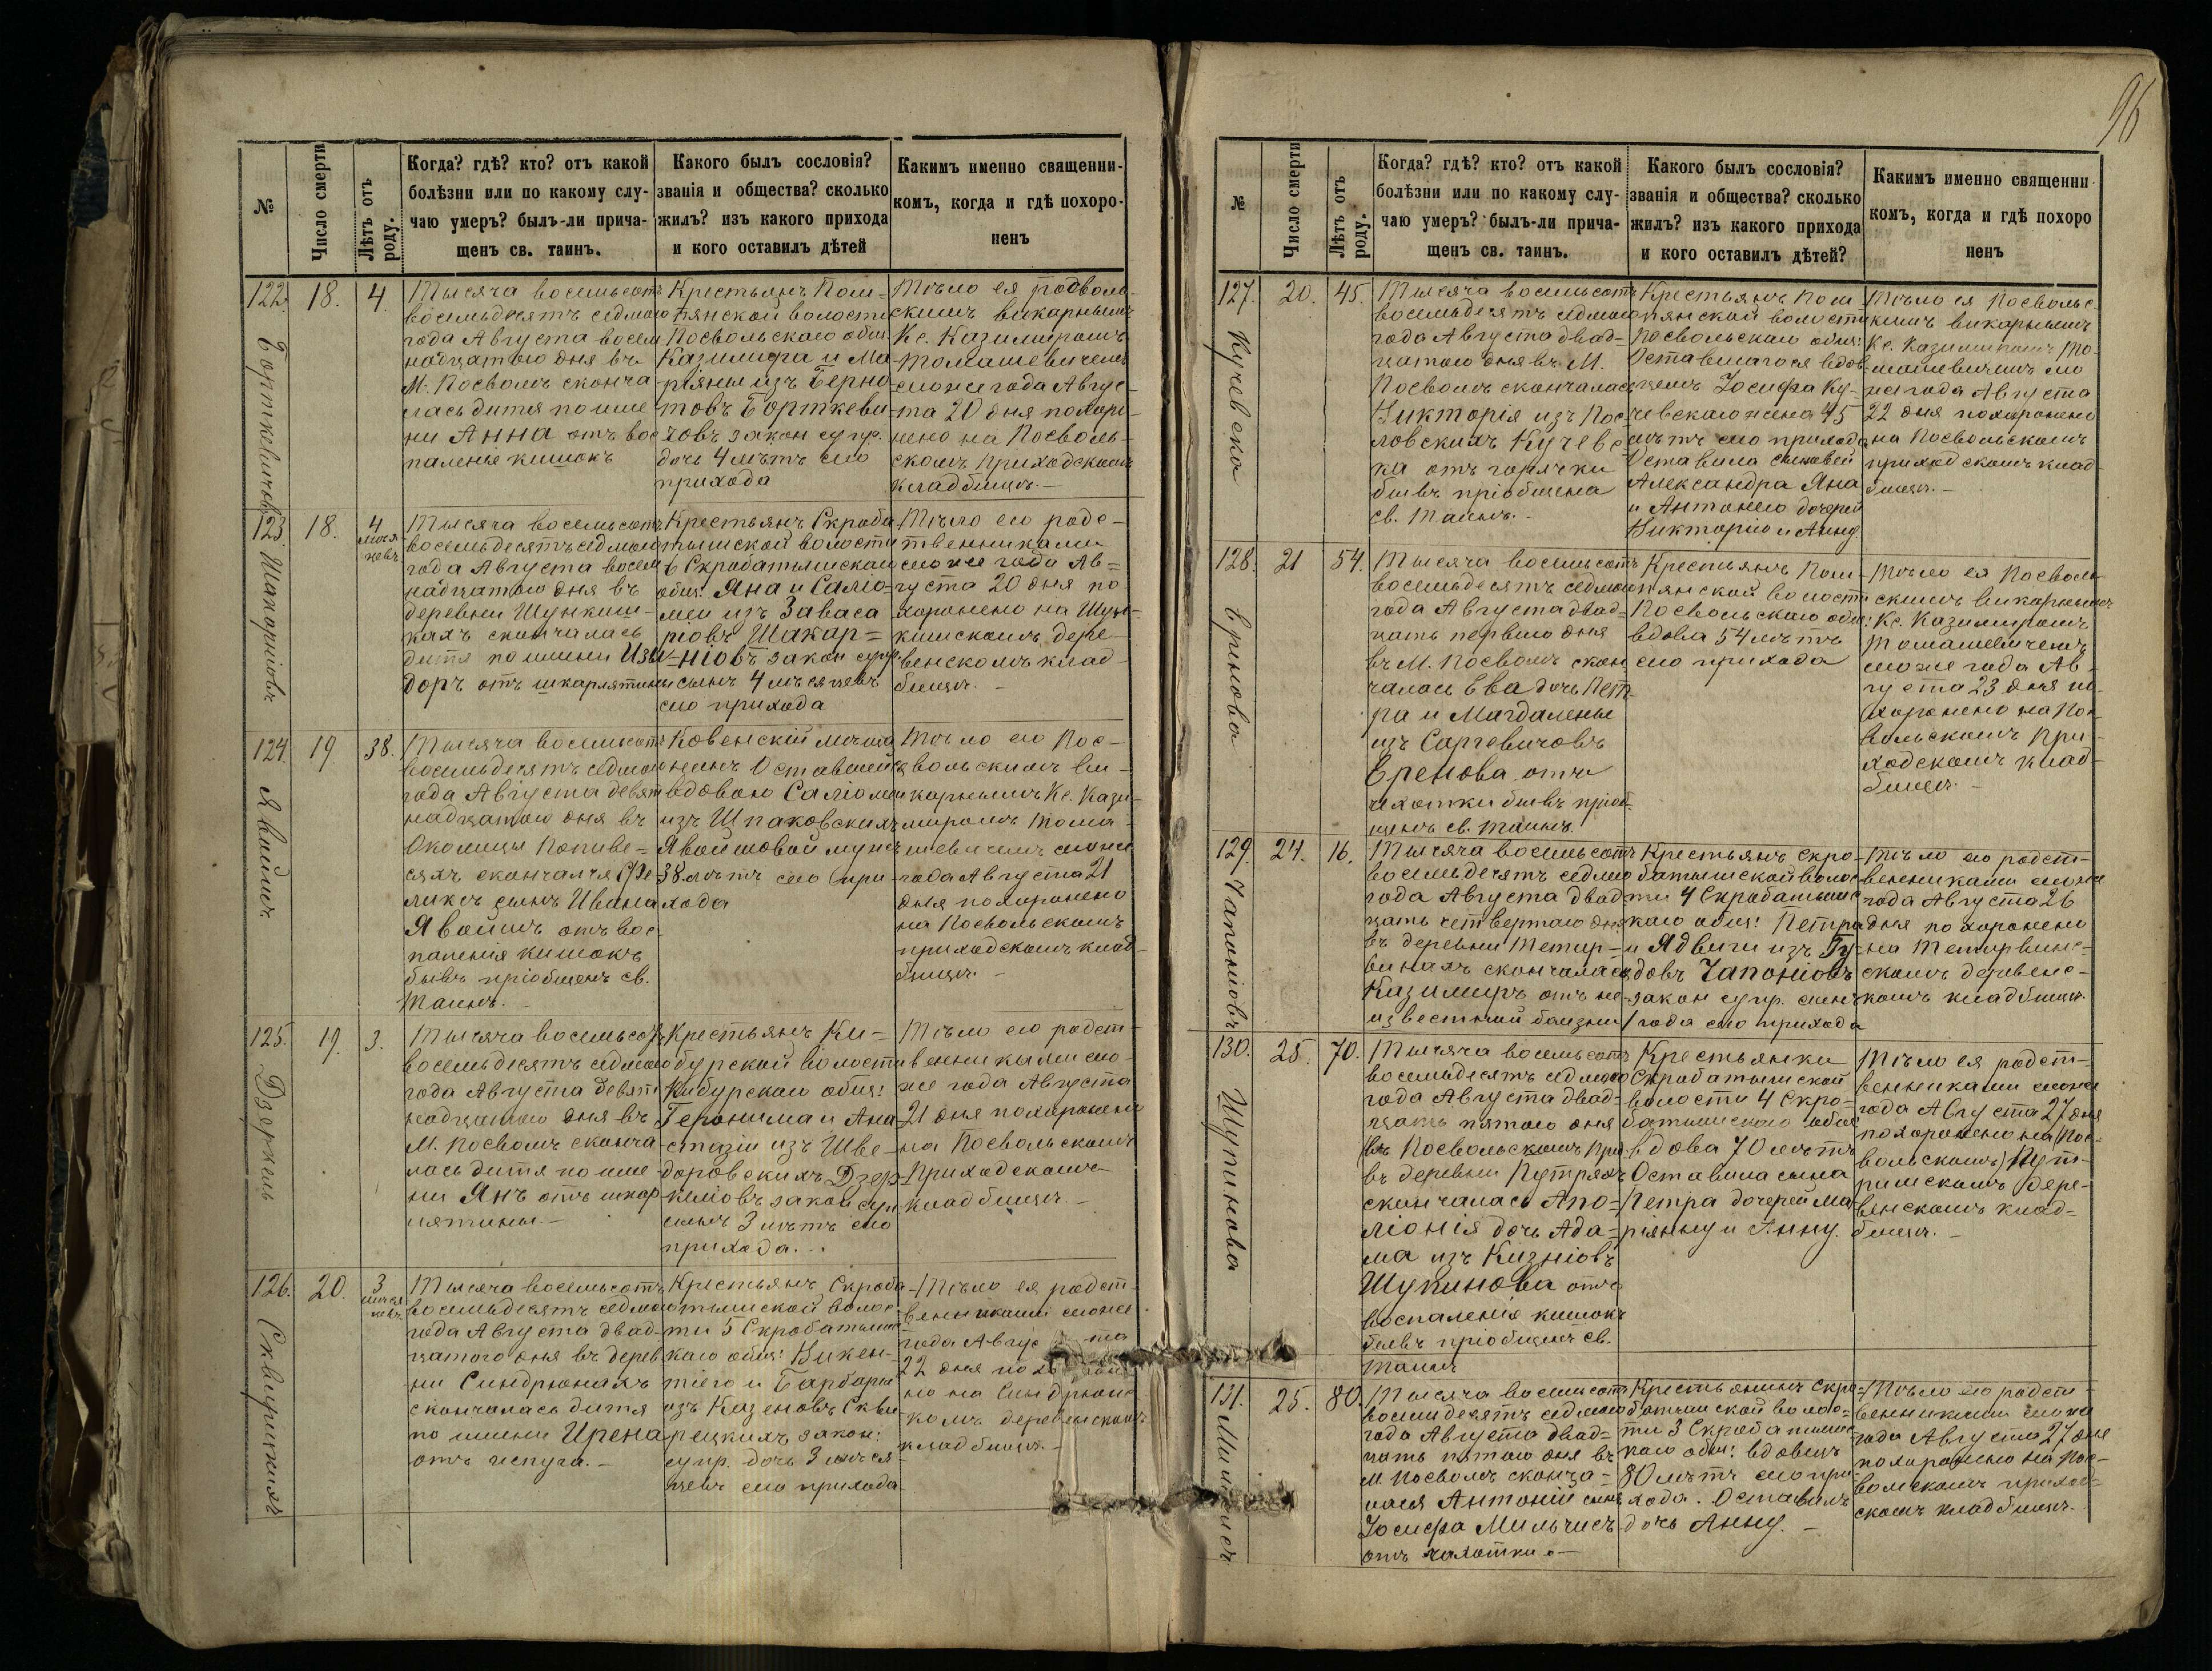 96
№
Число смерти
Лѣтъ отъ роду.
Когда? гдѣ? кто? отъ какой
болѣзни или по какому слу-
чаю умеръ? былъ-ли прича-
щенъ св. таинъ.
Какого былъ сословія?
званія и общества? сколько
жилъ? изъ какого прихода
и кого оставилъ дѣтей
Какимъ именно священни-
комъ, когда и гдѣ похоро-
ненъ
122.
Борткевичовъ
18.
4.
Тысяча восемьсотъ
восемьдесятъ седмого
года Августа восем
надцатого дня въ
М. Посволѣ сконча
лась дитя по име
ни Анна отъ вос
паленье кишокъ
Крестьянъ Пом-
пянской волости
Посвольскаго общ:
Казимира и Ма
ріянны изъ Берно
товъ Борткеви-
човъ закон супр.
дочь 4 лѣтъ сего
прихода
Тѣло ея посволь
скимъ викарнымъ
Кс. Казимиромъ
Томашевичемъ
сего же года Авгус-
та 20 дня похоро
нено на Посволь-
скомъ приходскомъ
кладбищѣ.—
123.
Шакарніовъ
18.
4 мѣся
цевъ
Тысяча восемьсотъ
восемьдесятъ седмого
года Августа восем
надцатого дня въ
деревни Шункиш-
кахъ скончалась
дитя по имени Изы
доръ отъ шкарлятины
Крестьянъ Скроба
тышской волости
6 Скробатышскаго
общ: Яна и Сало-
меи изъ Заваса
ріовъ Шакар=
ніовъ закон супр.
сынъ 4 мѣсяцевъ
сего прихода
Тѣло его родс-
твенниками
сего же года Ав=
густа 20 дня по
хоронено на Шун-
кишскомъ дере
венскомъ клад
бищѣ.—
124.
Явоишъ
19.
38.
Тысяча восемьсотъ
восемьдесятъ седмого
года Августа девят
надцатого дня въ
Околицы Попиве=
сяхъ скончался Фе-
ликсъ сынъ Ивана
Явоишъ отъ вос-
паленія кишокъ
бывъ пріобщенъ св.
Таинъ.—
Ковенскій мѣща
нинъ Оставшейся
вдовою Саломеи
изъ Шпаковскихъ
Явоишовой мужъ
38 лѣтъ сего при
хода
Тѣло его Пос-
вольскимъ ви-
карнымъ Кс. Кази-
миромъ Тома-
шевичемъ сего же
года Августа 21
дня похоронено
на Посвольскомъ
приходскомъ клад-
бищѣ.—
125.
Дзеркель
19.
3.
Тысяча восемьсотъ
восемьдесятъ седмого
года Августа девят
надцатого дня въ
М. Посволѣ сконча
лась дитя по име
ни Янъ отъ шкар
лятины.—
Крестьянъ Ки-
бурской волости
Кибурскаго общ:
Геронима и Ана
стазіи изъ Шве-
доровскихъ Дзер-
келіовъ закон супр
сынъ 3 лѣтъ сего
прихода.
Тѣло его родст-
венниками сего-
же года Августа
21 дня похоронено
на Посвольскомъ
Приходскомъ
кладбищѣ.—
126.
Сквирикихъ
20.
3 мѣся
цевъ
Тысяча восемьсотъ
восемьдесятъ седмого
года Августа двад-
цатого дня въ дерев
ни Синдрюнахъ
скончалась дитя
по имени Ирена
отъ испуга.—
Крестьянъ Скроба
тышской волос
ти 5 Скробатыш
каго общ: Викен-
тіего и Барбары
изъ Казеновъ Скви
рецкихъ закон:
супр. дочь 3 мѣся
цевъ сего прихода
Тѣло ея родст-
венниками сего же
года Авгус та
22 дня похоро
но на Синдрюнс
комъ деревенскомъ
кладбищѣ.—
№
Число смерти
Лѣтъ отъ роду.
Когда? гдѣ? кто? отъ какой
болѣзни или по какому слу-
чаю умеръ? былъ-ли прича-
щенъ св. таинъ.
Какого былъ сословія?
званія и общества? сколько
жилъ? изъ какого прихода
и кого оставилъ дѣтей?
Какимъ именно священни
комъ, когда и гдѣ похоро
ненъ
127.
Кучевска
20.
45.
Тысяча восемьсотъ
восемьдесятъ седмого
года Августа двад-
цатого дня въ М.
Посволѣ скончалась
Викторія изъ Пос-
ловскихъ Кучевс-
ка отъ горячки
бывъ пріобщена
св. Таинъ.
Крестьянъ Пом
пянской волости
Посвольскаго общ:
Оставшагося вдов
цемъ Іосифа Ку-
чевскаго жена 45
лѣтъ сего прихода
Оставила сыновей
Александра Яна
и Антонего дочерей
Викторію и Анну
Тѣло ея Посвольс-
кимъ викарнымъ
Кс. Казимиромъ То-
машевичемъ сего
же года Августа
22 дня похоронено
на Посвольскомъ
приходскомъ клад-
бищѣ.—
128.
Еренова
21
54.
Тысяча восемьсотъ
восемьдесятъ седмого
года Августа двад=
цать перваго дня
въ М. Посволѣ скон
чалась Ева дочь Пет-
ра и Магдалены
изъ Саргевичовъ
Еренова отъ
чахотки бывъ пріоб-
щенъ св. Таинъ.
Крестьянъ Пом-
пянской волости
Посвольскаго общ:
вдова 54 лѣтъ
сего прихода
Тѣло ея Посволь
скимъ викарнымъ
Кс. Казимиромъ
Томашевичемъ
сего же года Ав-
густа 23 дня по-
хоронено на Пос-
вольскомъ при-
ходскомъ клад-
бищѣ.—
129.
Чапоніовъ
24.
16.
Тысяча восемьсотъ
восемьдесятъ седмого
года Августа двад
цать четвертого дня
въ деревни Тетир-
винахъ скончалась
Казимиръ отъ не-
известной болзни
Крестьянъ Скро-
батышской волос
ти 4 Скробатышс
каго общ: Петра
и Ядвиги изъ Гу-
довъ Чапоніовъ
закон супр. сынъ
1 года сего прихода
Тѣло его родст-
венниками сего же
года Августа 26
дня похоронено
на Тетирвинс-
скомъ деревенс-
комъ кладбищѣ.
130.
Шупинова
25.
70.
Тысяча восемьсотъ
восемьдесятъ седмого
года Августа двад-
цать пятого дня
въ Посвольскомъ При
въ деревни Путряхъ
скончалась Апо-
лонія дочь Ада-
ма изъ Кизніовъ
Шупинова отъ
воспаленія кишокъ
бывъ пріобщенъ св.
Таинъ
Крестьянки
Скробатышской
волости 4 Скро-
батышскаго общ:
вдова 70 лѣтъ
Оставила сына
Петра дочерей Ма
ріянну и Анну.
Тѣло ея родст-
венниками сего же
года Августа 27 дня
похоронено на (Пос-
вольскомъ) Пут-
ришскомъ дере-
вянскомъ клад=
бищѣ.—
131.
25.
80.
Тысяча восемьсотъ
восемьдесятъ седмого
года Августа двад-
цать пятого дня въ
М. Посволѣ сконча-
лся Антоній сынъ
Іосифа Мильчисъ
отъ чахотки.—
Крестьянинъ Скро-
батышской волос-
ти 3 Скробатышс
каго общ: вдовецъ
80 лѣтъ сего при-
хода. Оставилъ
дочь Анну.—
Тѣло его родст-
венниками сего же
года Августа 27 дня
похоронено на Пос-
вольскомъ приход-
скомъ кладбищѣ.